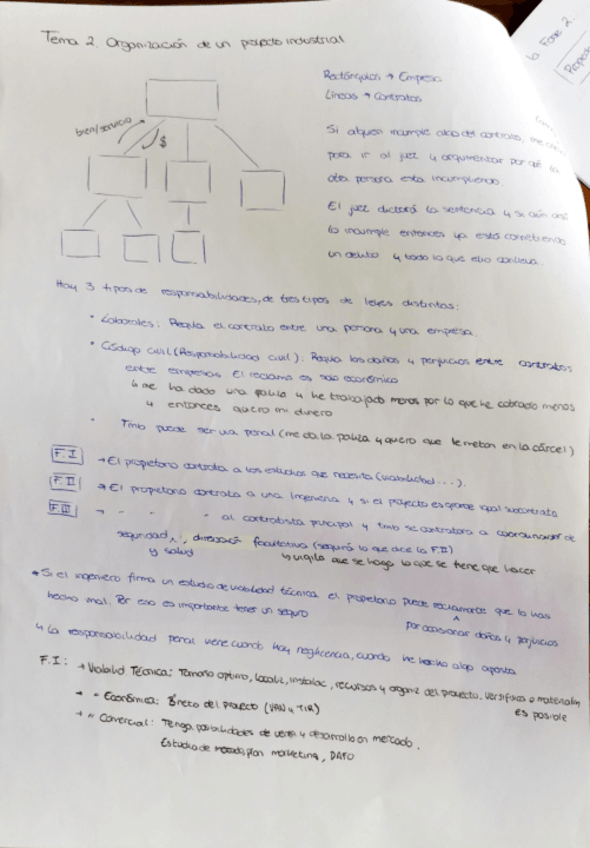 Tema 2. Organización de un proyecto industrial
Rectángulos → Empresa
Líneas → Contratos
bien/servicio
$
Si alguien incumple algo del contrato, me
para ir al juez y argumentar por qué la
otra persona esta incumpliendo.
El juez dictará la sentencia y si aún así
lo incumple entonces ya está cometiendo
un delito y todo lo que ello conlleva.
Hay 3 tipos de responsabilidades, de tres tipos de leyes distintas:
• Laborales: Regula el contrato entre una persona y una empresa.
• Código civil (Responsabilidad civil): Regula los daños y perjuicios entre contratos
entre empresas. El reclamo es solo económico
↳ me ha dado una paliza y he trabajado menos por lo que he cobrado menos
y entonces quiero mi dinero
• Tmb puede ser via penal (me da la paliza y quiero que le metan en la cárcel)
F.I → El propietario contrata a los estudios que necesita (viabilidad ...).
F.II → El propietario contrata a una Ingeniería y si el proyecto es grande igual subcontrata
F.III → " " " al contratista principal y tmb se contratara a coordinador de
seguridad y salud, dirección facultativa (seguirá lo que dice la F.II)
↳ vigila que se haga lo que se tiene que hacer
* Si el ingeniero firma un estudio de viabilidad técnica el propietario puede reclamarte que lo has
hecho mal. Por eso es importante tener un seguro
por ocasionar daños y perjuicios
↳ La responsabilidad penal viene cuando hay neglicencia, cuando he hecho algo aposta
F.I: → Viabilid Técnica: Tamaño optimo, localiz, instalac, recursos y organiz del proyecto. Verificar o materializ
es posible
→ " Económica: Bº neto del proyecto (VAN y TIR)
→ " Comercial: Tenga posibilidades de venta y desarrollo en mercado.
Estudio de mercado, plan marketing, DAFO
Fase 2.